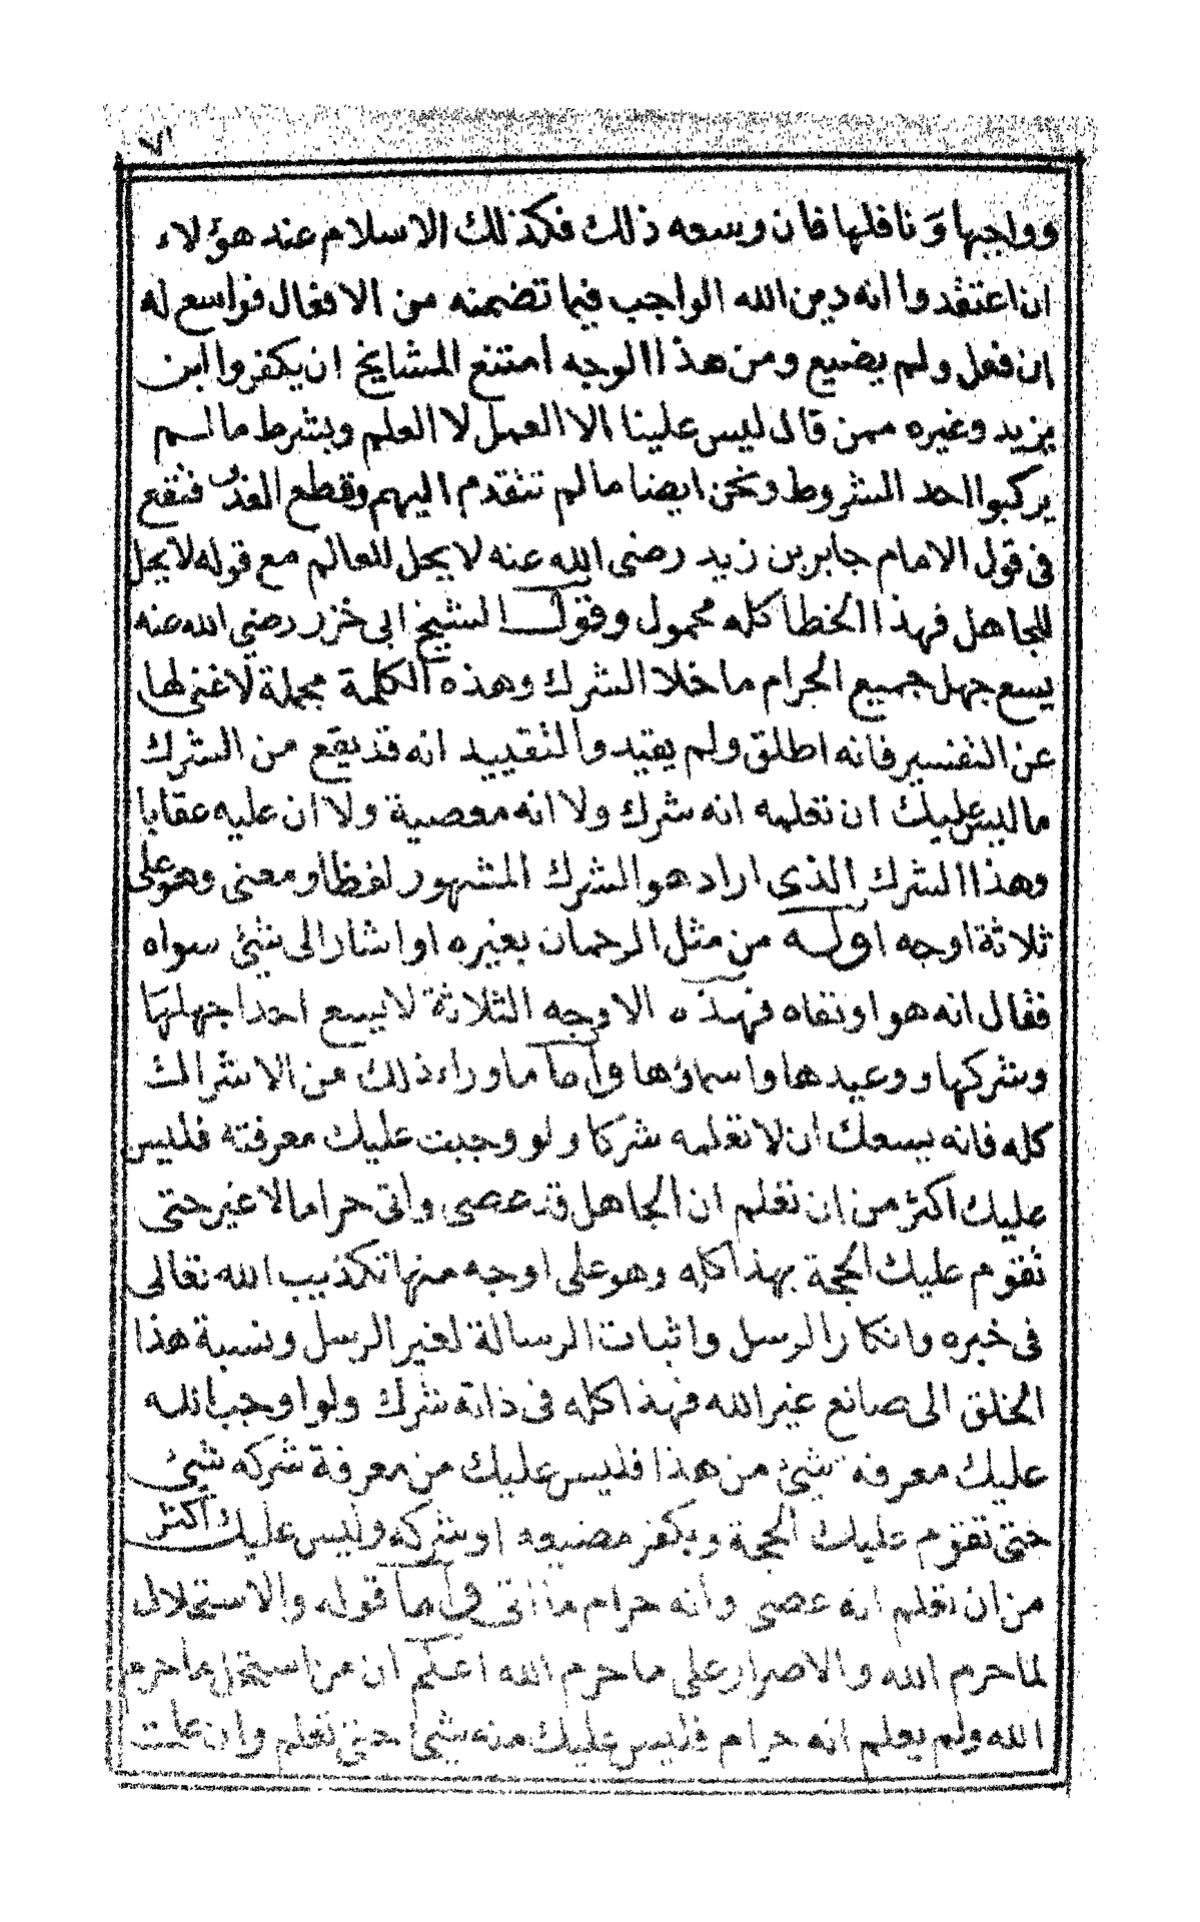 ٧١
وواجبها ونافلها فان وسعه ذلك فكذلك الاسلام عند هؤلاء
ان اعتقدوا انه دين الله الواجب فيما تضمنه من الافعال فواسع له
ان فعل ولم يضيع ومن هذا الوجه امتنع المشايخ ان يكفروا ابن
يزيد وغيره ممن قال ليس علينا الا العمل لا العلم وبشرط ما لم
يركبوا احد الشروط ونحن ايضا ما لم نتقدم اليهم وقطع العذر فنقع
في قول الامام جابر بن زيد رضى الله عنه لا يحل للعالم مع قوله لا يحل
للجاهل فهذا الخطا كله محمول وقول الشيخ ابى خزر رضي الله عنه
يسع جهل جميع الحرام ما خلا الشرك وهذه الكلمة مجملة لا غنى لها
عن التفسير فانه اطلق ولم يقيد والتقييد انه قد يقع من الشرك
ما ليس عليك ان تعلمه انه شرك ولا انه معصية ولا ان عليه عقابا
وهذا الشرك الذى اراد هو الشرك المشهور لفظا ومعنى وهو على
ثلاثة اوجه اوله من مثل الرحمان بغيره او اشار الى شئ سواه
فقال انه هو او نفاه فهذه الاوجه الثلاثة لا يسع احدا جهلها
وشركها ووعيدها واسماؤها واما ما وراء ذلك من الاشراك
كله فانه يسعك ان لا تعلمه شركا ولو وجبت عليك معرفته فليس
عليك اكثر من ان تعلم ان الجاهل قد عصى واتى حراما لا غير حتى
تقوم عليك الحجة بهذا كله وهو على اوجه منها تكذيب الله تعالى
فى خبره وانكار الرسل واثبات الرسالة لغير الرسل ونسبة هذا
الخلق الى صانع غير الله فهذا كله فى ذاته شرك ولو اوجب الله
عليك معرفة شئ من هذا فليس عليك من معرفة شركه شئ
حتى تقوم عليك الحجة ويكفر مضيعه او شركه وليس عليك اكثر
من ان تعلم انه عصى وانه حرام ما اتى واما قوله والاستحلال
لما حرم الله والاصرار على ما حرم الله اعلم ان من استحل ما حرم
الله ولم يعلم انه حرام فليس عليك منه شئ حتى تعلم وان علمت